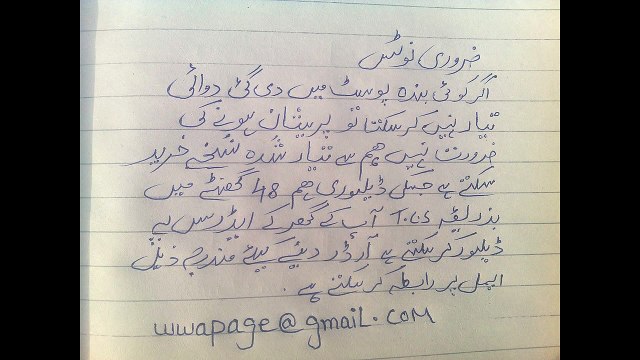 ضروری نوٹس
اگر کوئی بندہ پوسٹ میں دی گئی دوائی
تیار نہیں کر سکتا تو پریشان ہونے کی
ضرورت نہیں ہم سے تیار شدہ نسخے خرید
سکتے ہے جسکی ڈیلیوری ہم 48 گھنٹے میں
بذریعہ T.C.S آپ کے گھر کے ایڈرس پے
ڈیلیور کر سکتے ہے آرڈر دینے کیلئے مندرجہ ذیل
ایمل پر رابطہ کر سکتے ہے .
wwapage@gmail.com